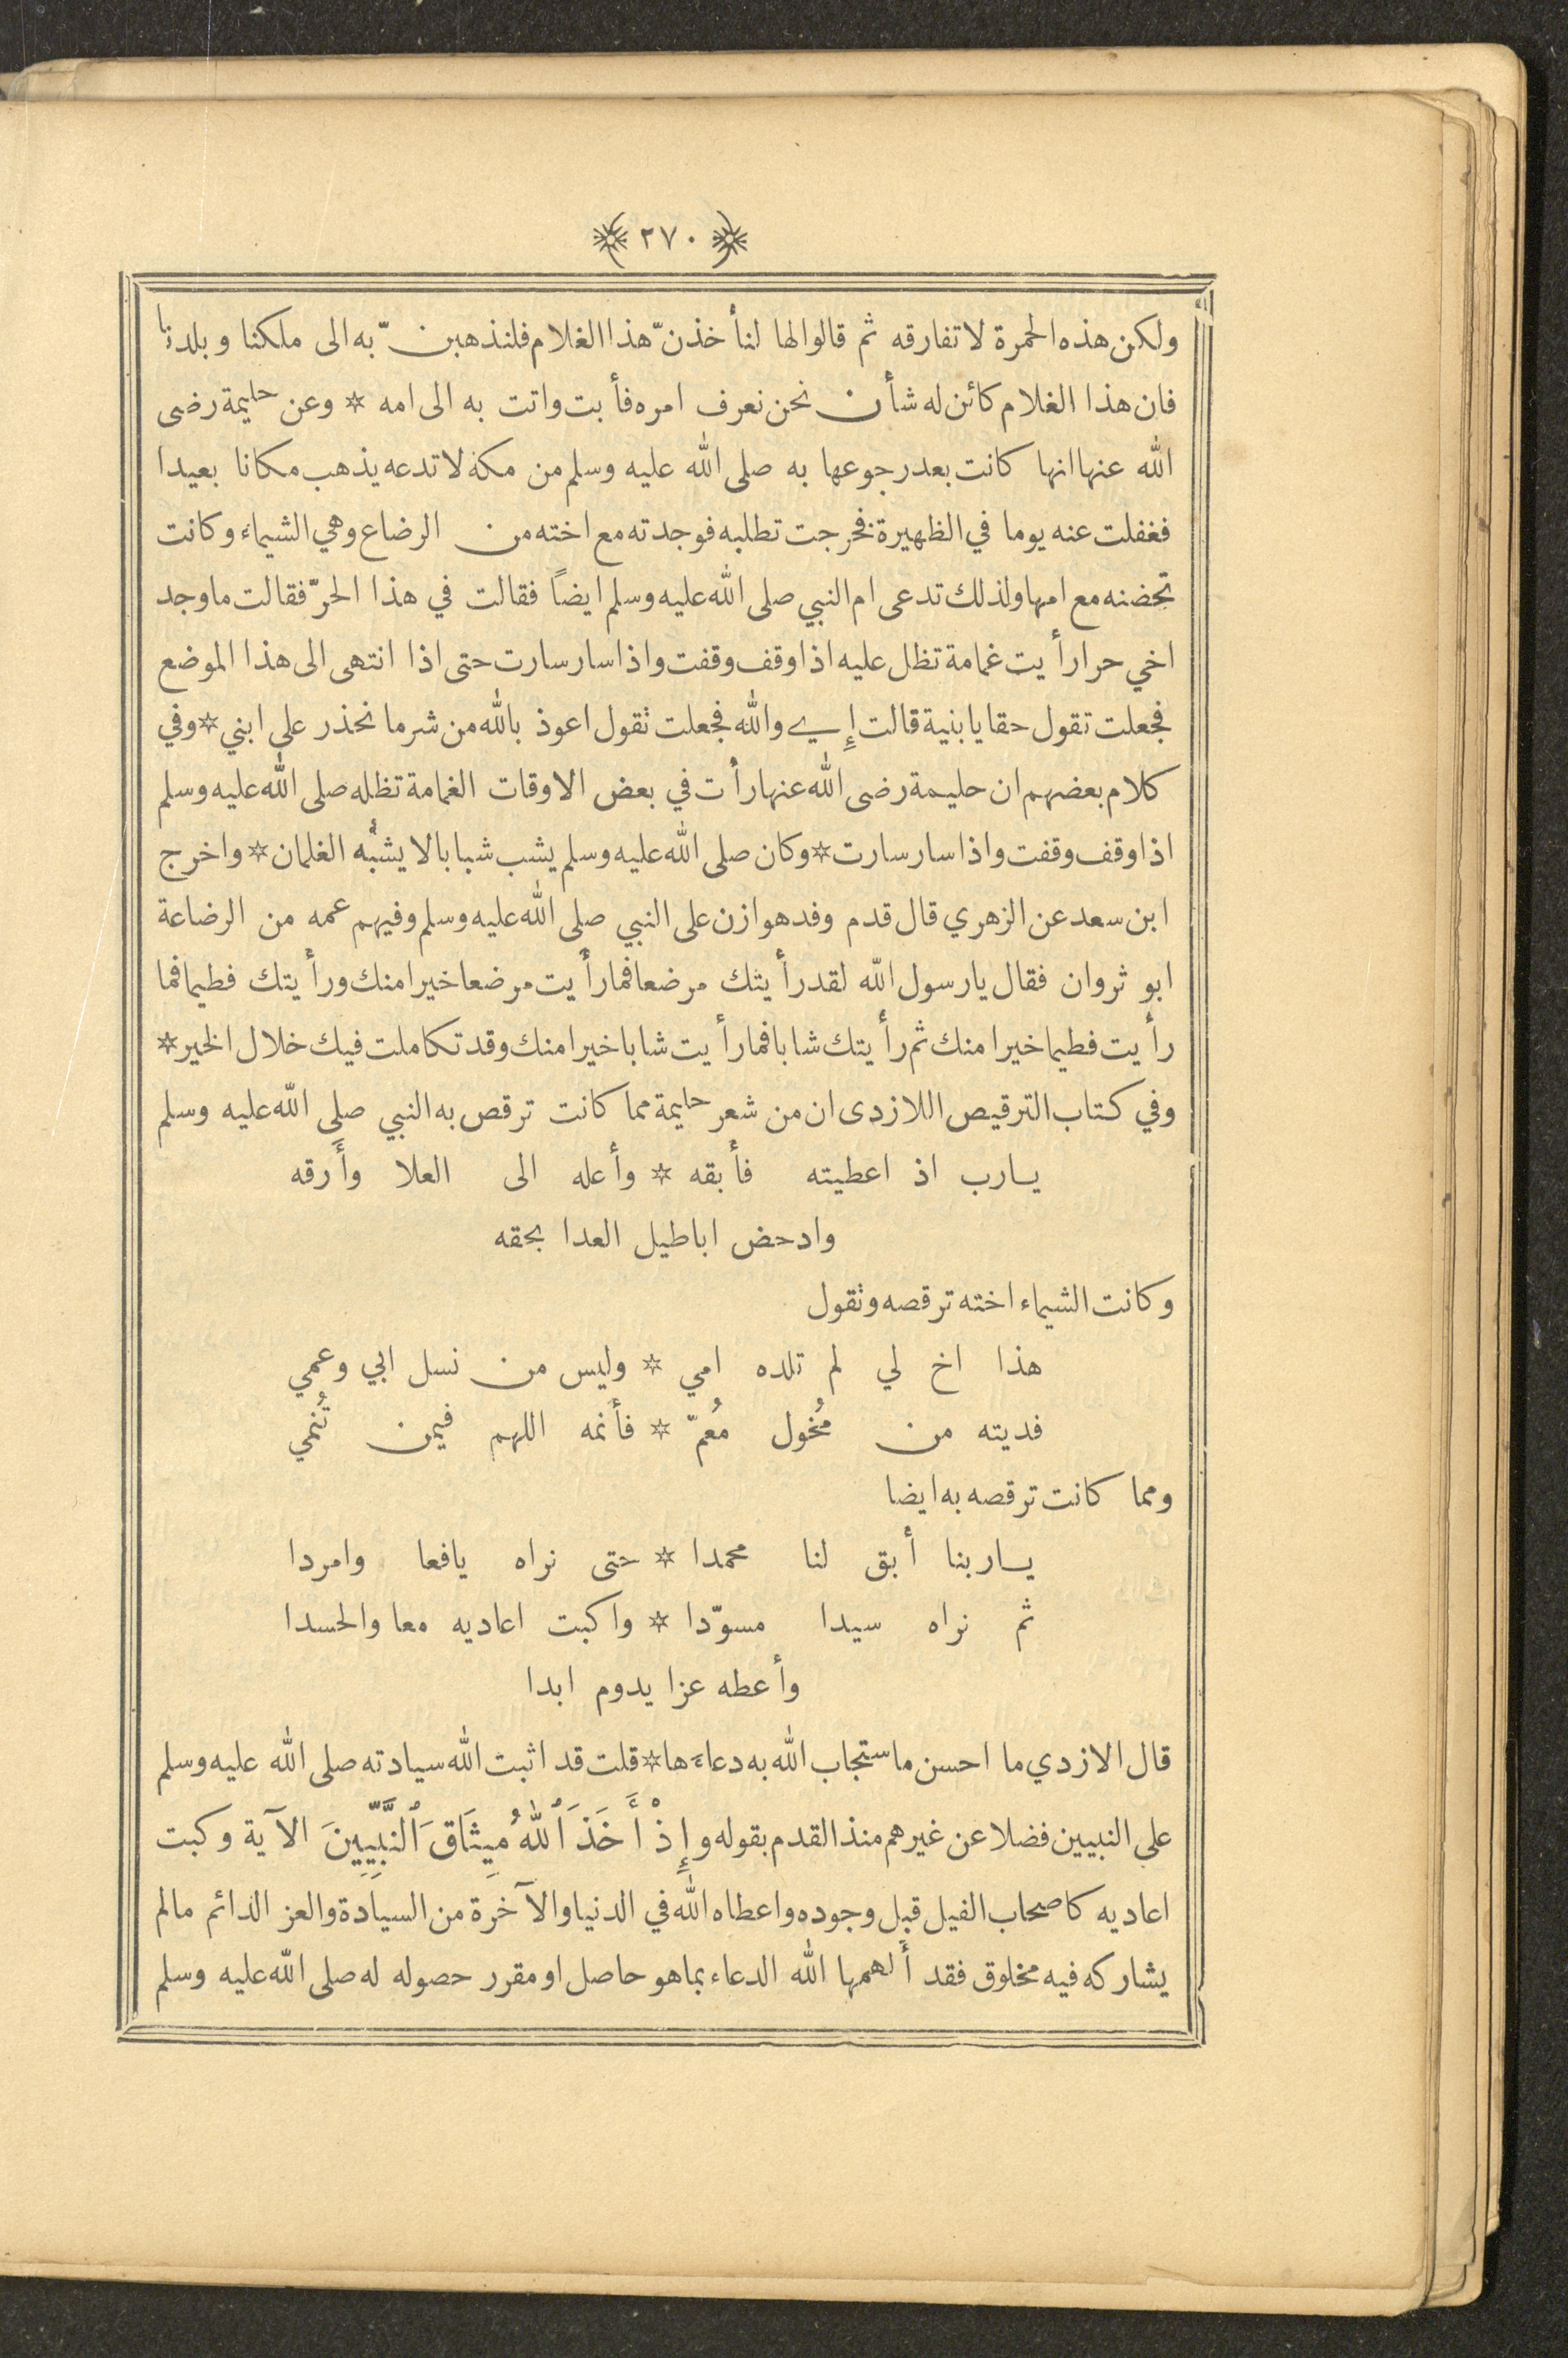 ٢٧٠
ولكن هذه الحمرة لا تفارقه ثم قالوا لها لنأخذنّ هذا الغلام فلنذهبنّ به الى ملكنا وبلدنا
فان هذا الغلام كائن له شأن نحن نعرف امره فأبت واتت به الى امه * وعن حليمة رضى
الله عنها انها كانت بعد رجوعها به صلى الله عليه وسلم من مكة لا تدعه يذهب مكانا بعيدا
فغفلت عنه يوما في الظهيرة فخرجت تطلبه فوجدته مع اخته من الرضاع وهي الشيماء وكانت
تحضنه مع امها ولذلك تدعى ام النبي صلى الله عليه وسلم ايضاً فقالت في هذا الحرّ فقالت ما وجد
اخي حرا رأيت غمامة تظل عليه اذا وقف وقفت واذا سار سارت حتى اذا انتهى الى هذا الموضع
فجعلت تقول حقا يا بنية قالت إي والله فجعلت تقول اعوذ بالله من شر ما نحذر على ابني * وفي
كلام بعضهم ان حليمة رضى الله عنها رأت في بعض الاوقات الغمامة تظله صلى الله عليه وسلم
اذا وقف وقفت واذا سار سارت * وكان صلى الله عليه وسلم يشب شبابا لا يشبُّه الغلمان * واخرج
ابن سعد عن الزهري قال قدم وفد هوازن على النبي صلى الله عليه وسلم وفيهم عمه من الرضاعة
ابو ثروان فقال يا رسول الله لقد رأيتك مرضعا فما رأيت مرضعا خيرا منك ورأيتك فطيما فما
رأيت فطيما خيرا منك ثم رأيتك شابا فما رأيت شابا خيرا منك وقد تكاملت فيك خلال الخير *
وفي كتاب الترقيص اللازدى ان من شعر حليمة مما كانت ترقص به النبي صلى الله عليه وسلم
يارب اذ اعطيته فأبقه * وأعله الى العلا وأَرقه
وادحض اباطيل العدا بحقه
وكانت الشيماء اخته ترقصه وتقول
هذا اخ لي لم تلده امي * وليس من نسل ابي وعمي
فديته من مُخول مُعمّ * فأنمه اللهم فيمن تُنمي
ومما كانت ترقصه به ايضا
ياربنا أبق لنا محمدا * حتى نراه يافعا وامردا
ثم نراه سيدا مسوّدا * واكبت اعاديه معا والحسدا
وأعطه عزا يدوم ابدا
قال الازدي ما احسن ما ستجاب الله به دعاءها * قلت قد اثبت الله سيادته صلى الله عليه وسلم
على النبيين فضلا عن غيرهم منذ القدم بقوله وإِذْ أَخَذَ ٱللهُ مِيثَاقَ ٱلنَّبِيِّينَ الآية وكبت
اعاديه كاصحاب الفيل قبل وجوده واعطاه الله في الدنيا والآخرة من السيادة والعز الدائم مالم
يشاركه فيه مخلوق فقد أَلهمها الله الدعاء بما هو حاصل او مقرر حصوله له صلى الله عليه وسلم